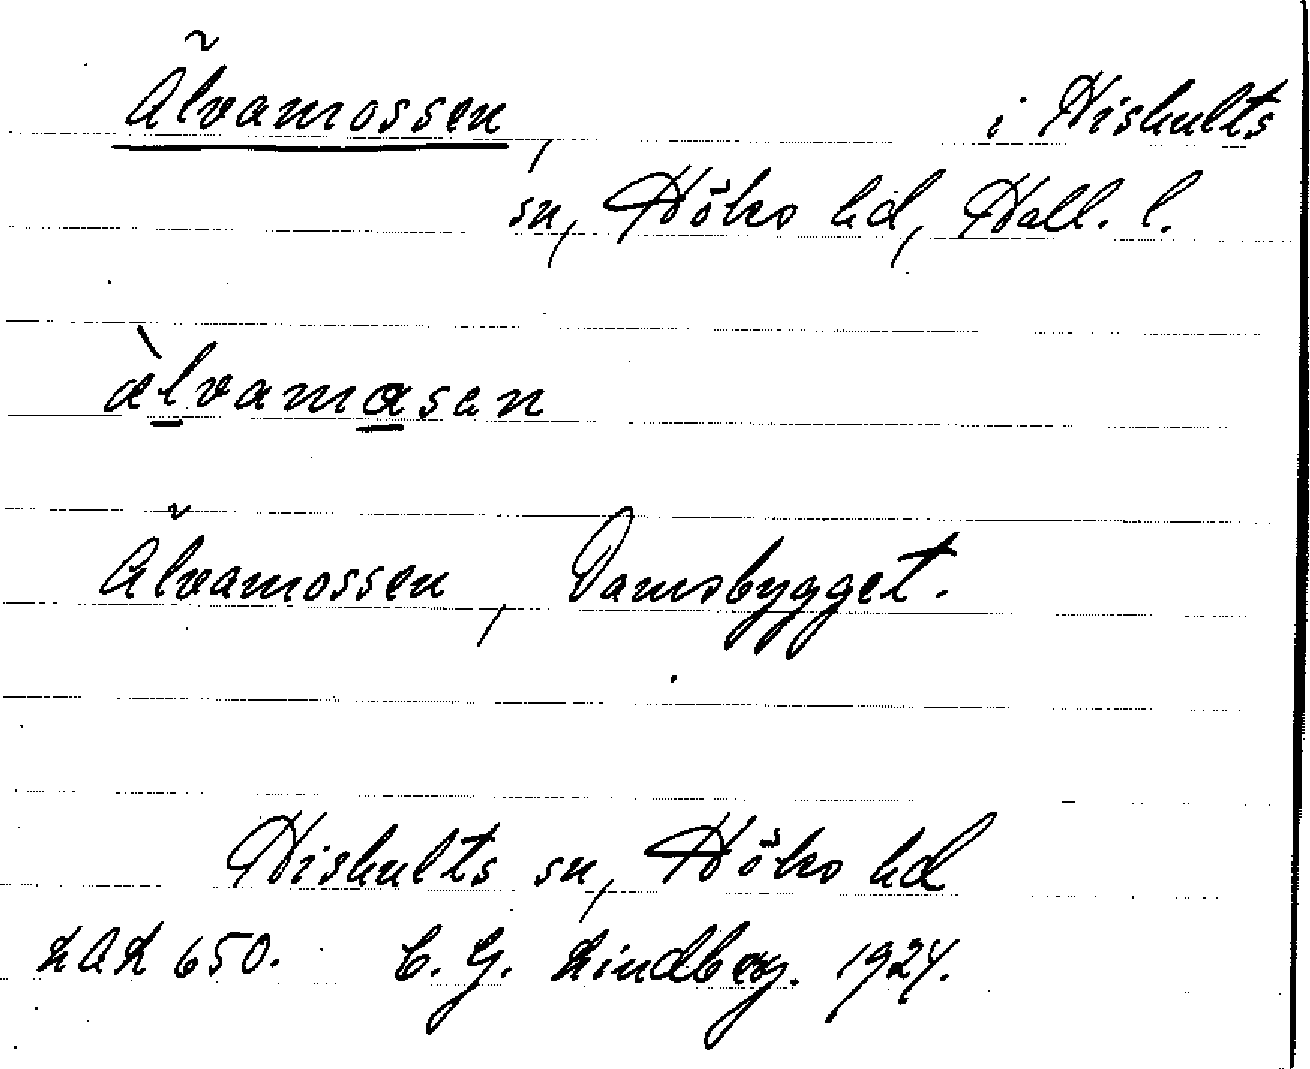 Älvamossen, i Hishults
sn, Höks hd, Hall. l.
àlvamasen
Älvamossen, Damsbygget.
Hishults sn, Höks hd
LAL 650. C. G. Lindberg. 1924.